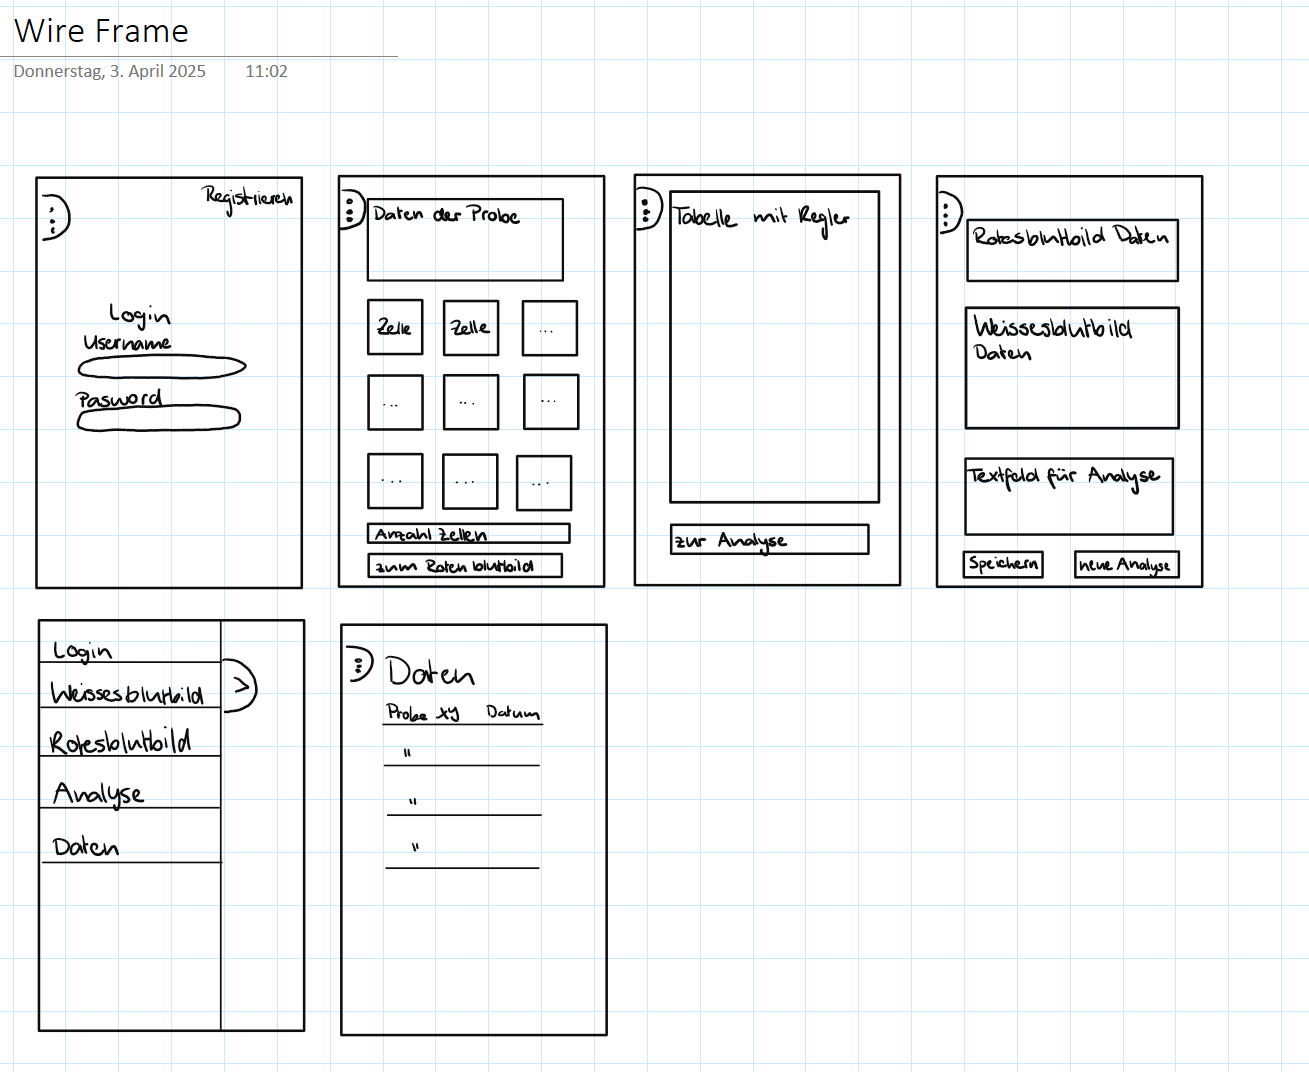 Wire Frame
Donnerstag, 3. April 2025 11:02
Registrieren
Login
Username
Pasword
Daten der Probe
Zelle Zelle ...
... ... ...
... ... ...
Anzahl Zellen
zum Roten blutbild
Tabelle mit Regler
zur Analyse
Rotesblutbild Daten
Weissesblutbild
Daten
Textfeld für Analyse
Speichern neue Analyse
Login
Weissesblutbild
>
Rotesblutbild
Analyse
Daten
Daten
Probe xy Datum
"
"
"